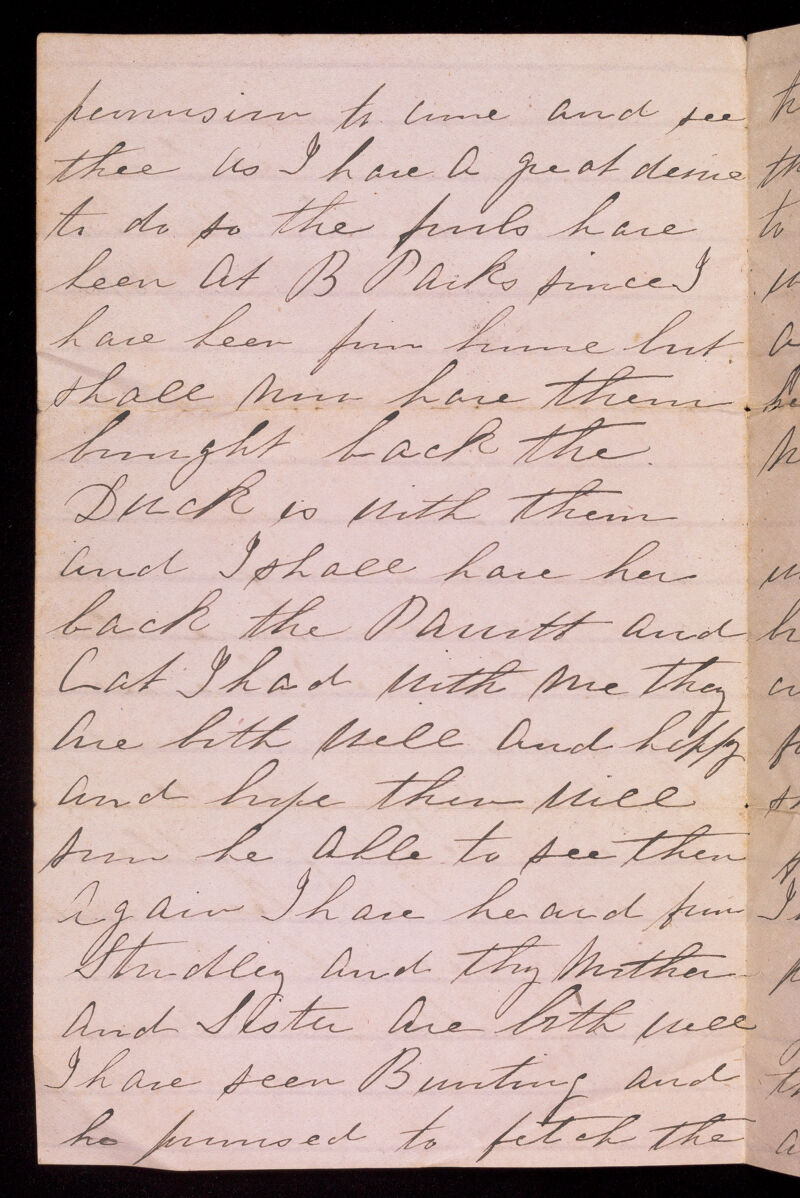 permission to come and see
thee as I have a great desire
to do so the fowls have
been at B Parks since I
have been from home but
shall now have them
brought back the
Duck is with them
and I shall have her
back the Parrott and
Cat I had with me they
are both well and happy
and hope thou will
soon be able to see them
Again I have heard from
Studley and thy Mother
and Sister are both well
I have seen Bunting and
he promised to fetch the